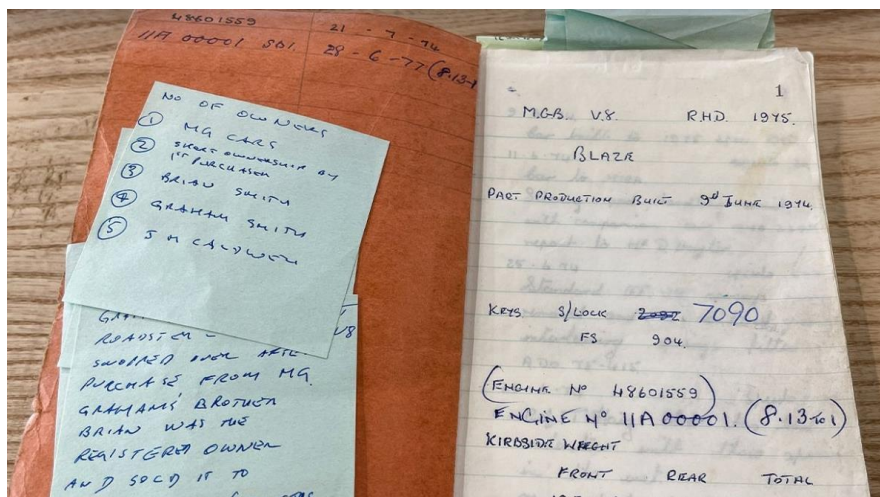 48601559 21 - 7 - 74
11A 00001 SD1. 28 - 6 - 77 (8.13-1
NO OF OWNERS
① MG CARS
② SHORT OWNERSHIP BY
1ST PURCHASER
③ BRIAN SMITH
④ GRAHAM SMITH
⑤ J M CALDWELL
ROADSTER V8
SWOPPED OVER AFTE
PURCHASE FROM MG.
GRAHAM'S BROTHER
BRIAN WAS THE
REGISTERED OWNER
AND SOLD IT TO
1
M.G.B. V.8. R.H.D. 1975.
BLAZE
PART PRODUCTION BUILT 9th JUNE 1974.
KEYS S/LOCK 7090
FS 904.
(ENGINE No 48601559)
ENGINE No 11A00001. (8.13 to 1)
KIRBSIDE WEIGHT
FRONT REAR TOTAL